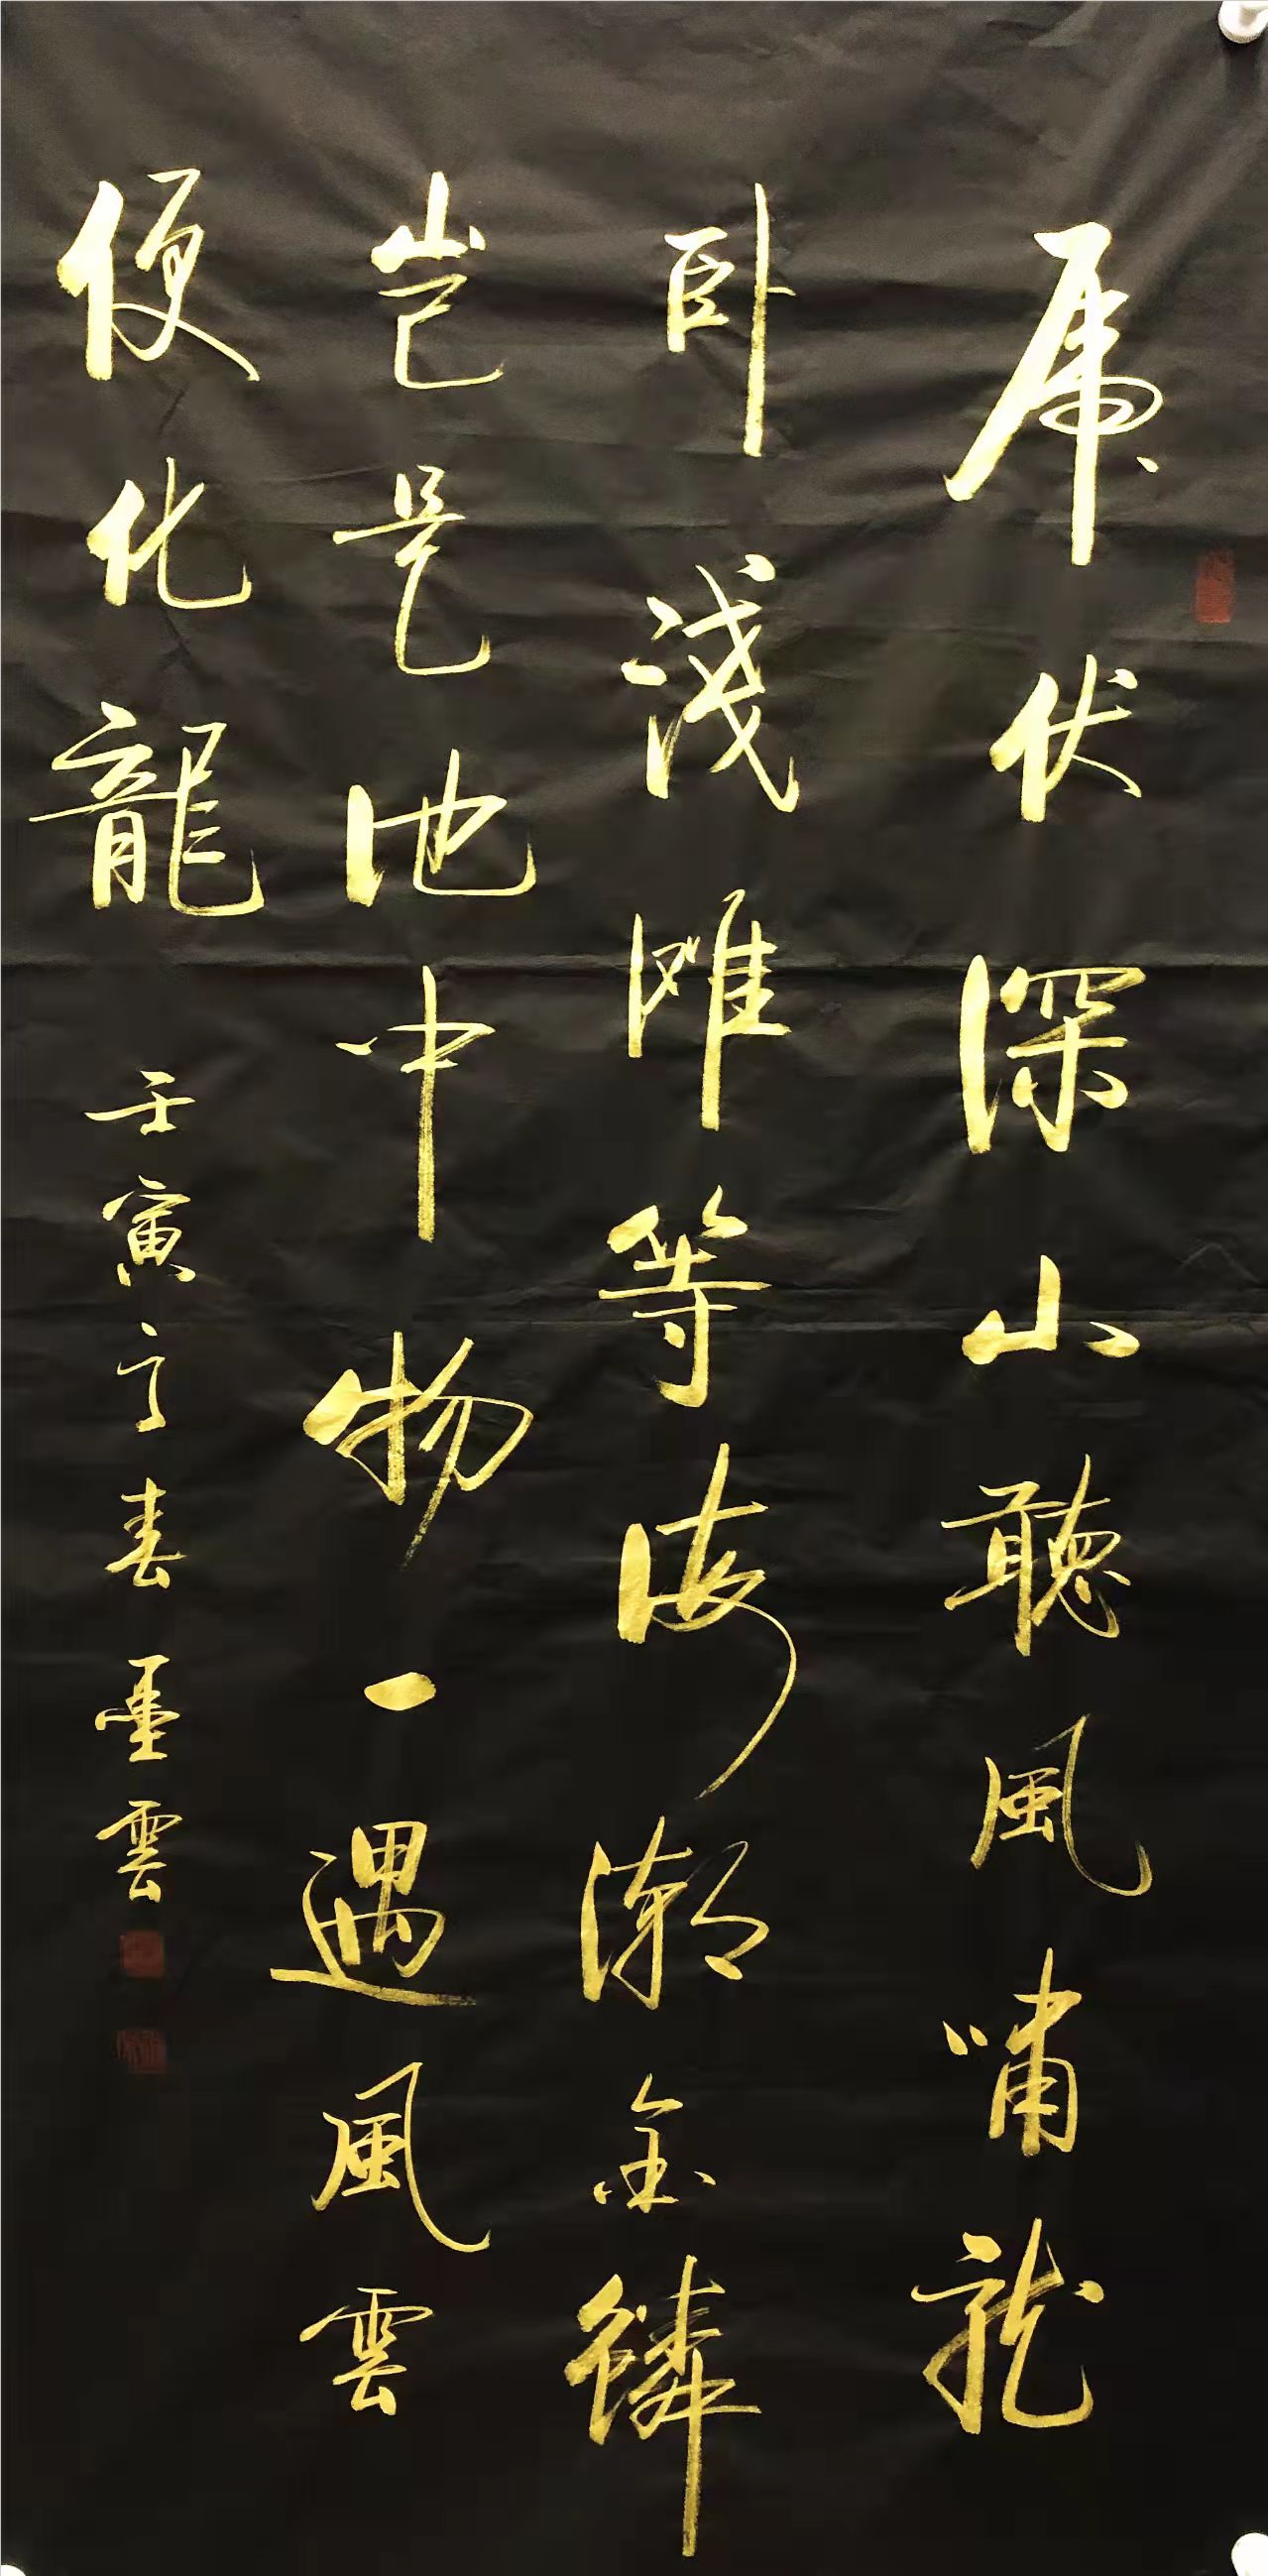 虎伏深山聽風嘯龍
卧淺滩等海潮金鱗
豈是池中物一遇風雲
便化龍
壬寅春墨雲